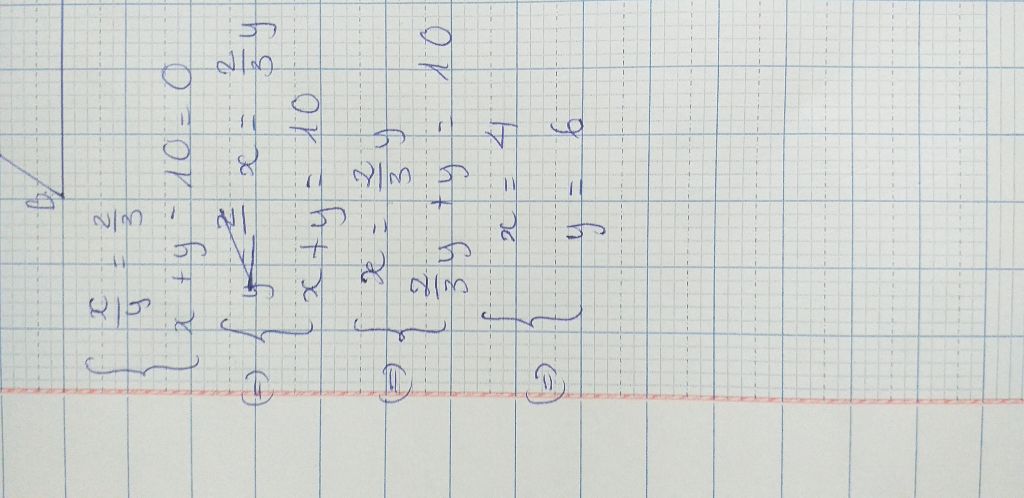 B
{ x/y = 2/3
x + y - 10 = 0
(=) { x = 2/3 y
x + y = 10
(=) { x = 2/3 y
2/3 y + y = 10
(=) { x = 4
y = 6